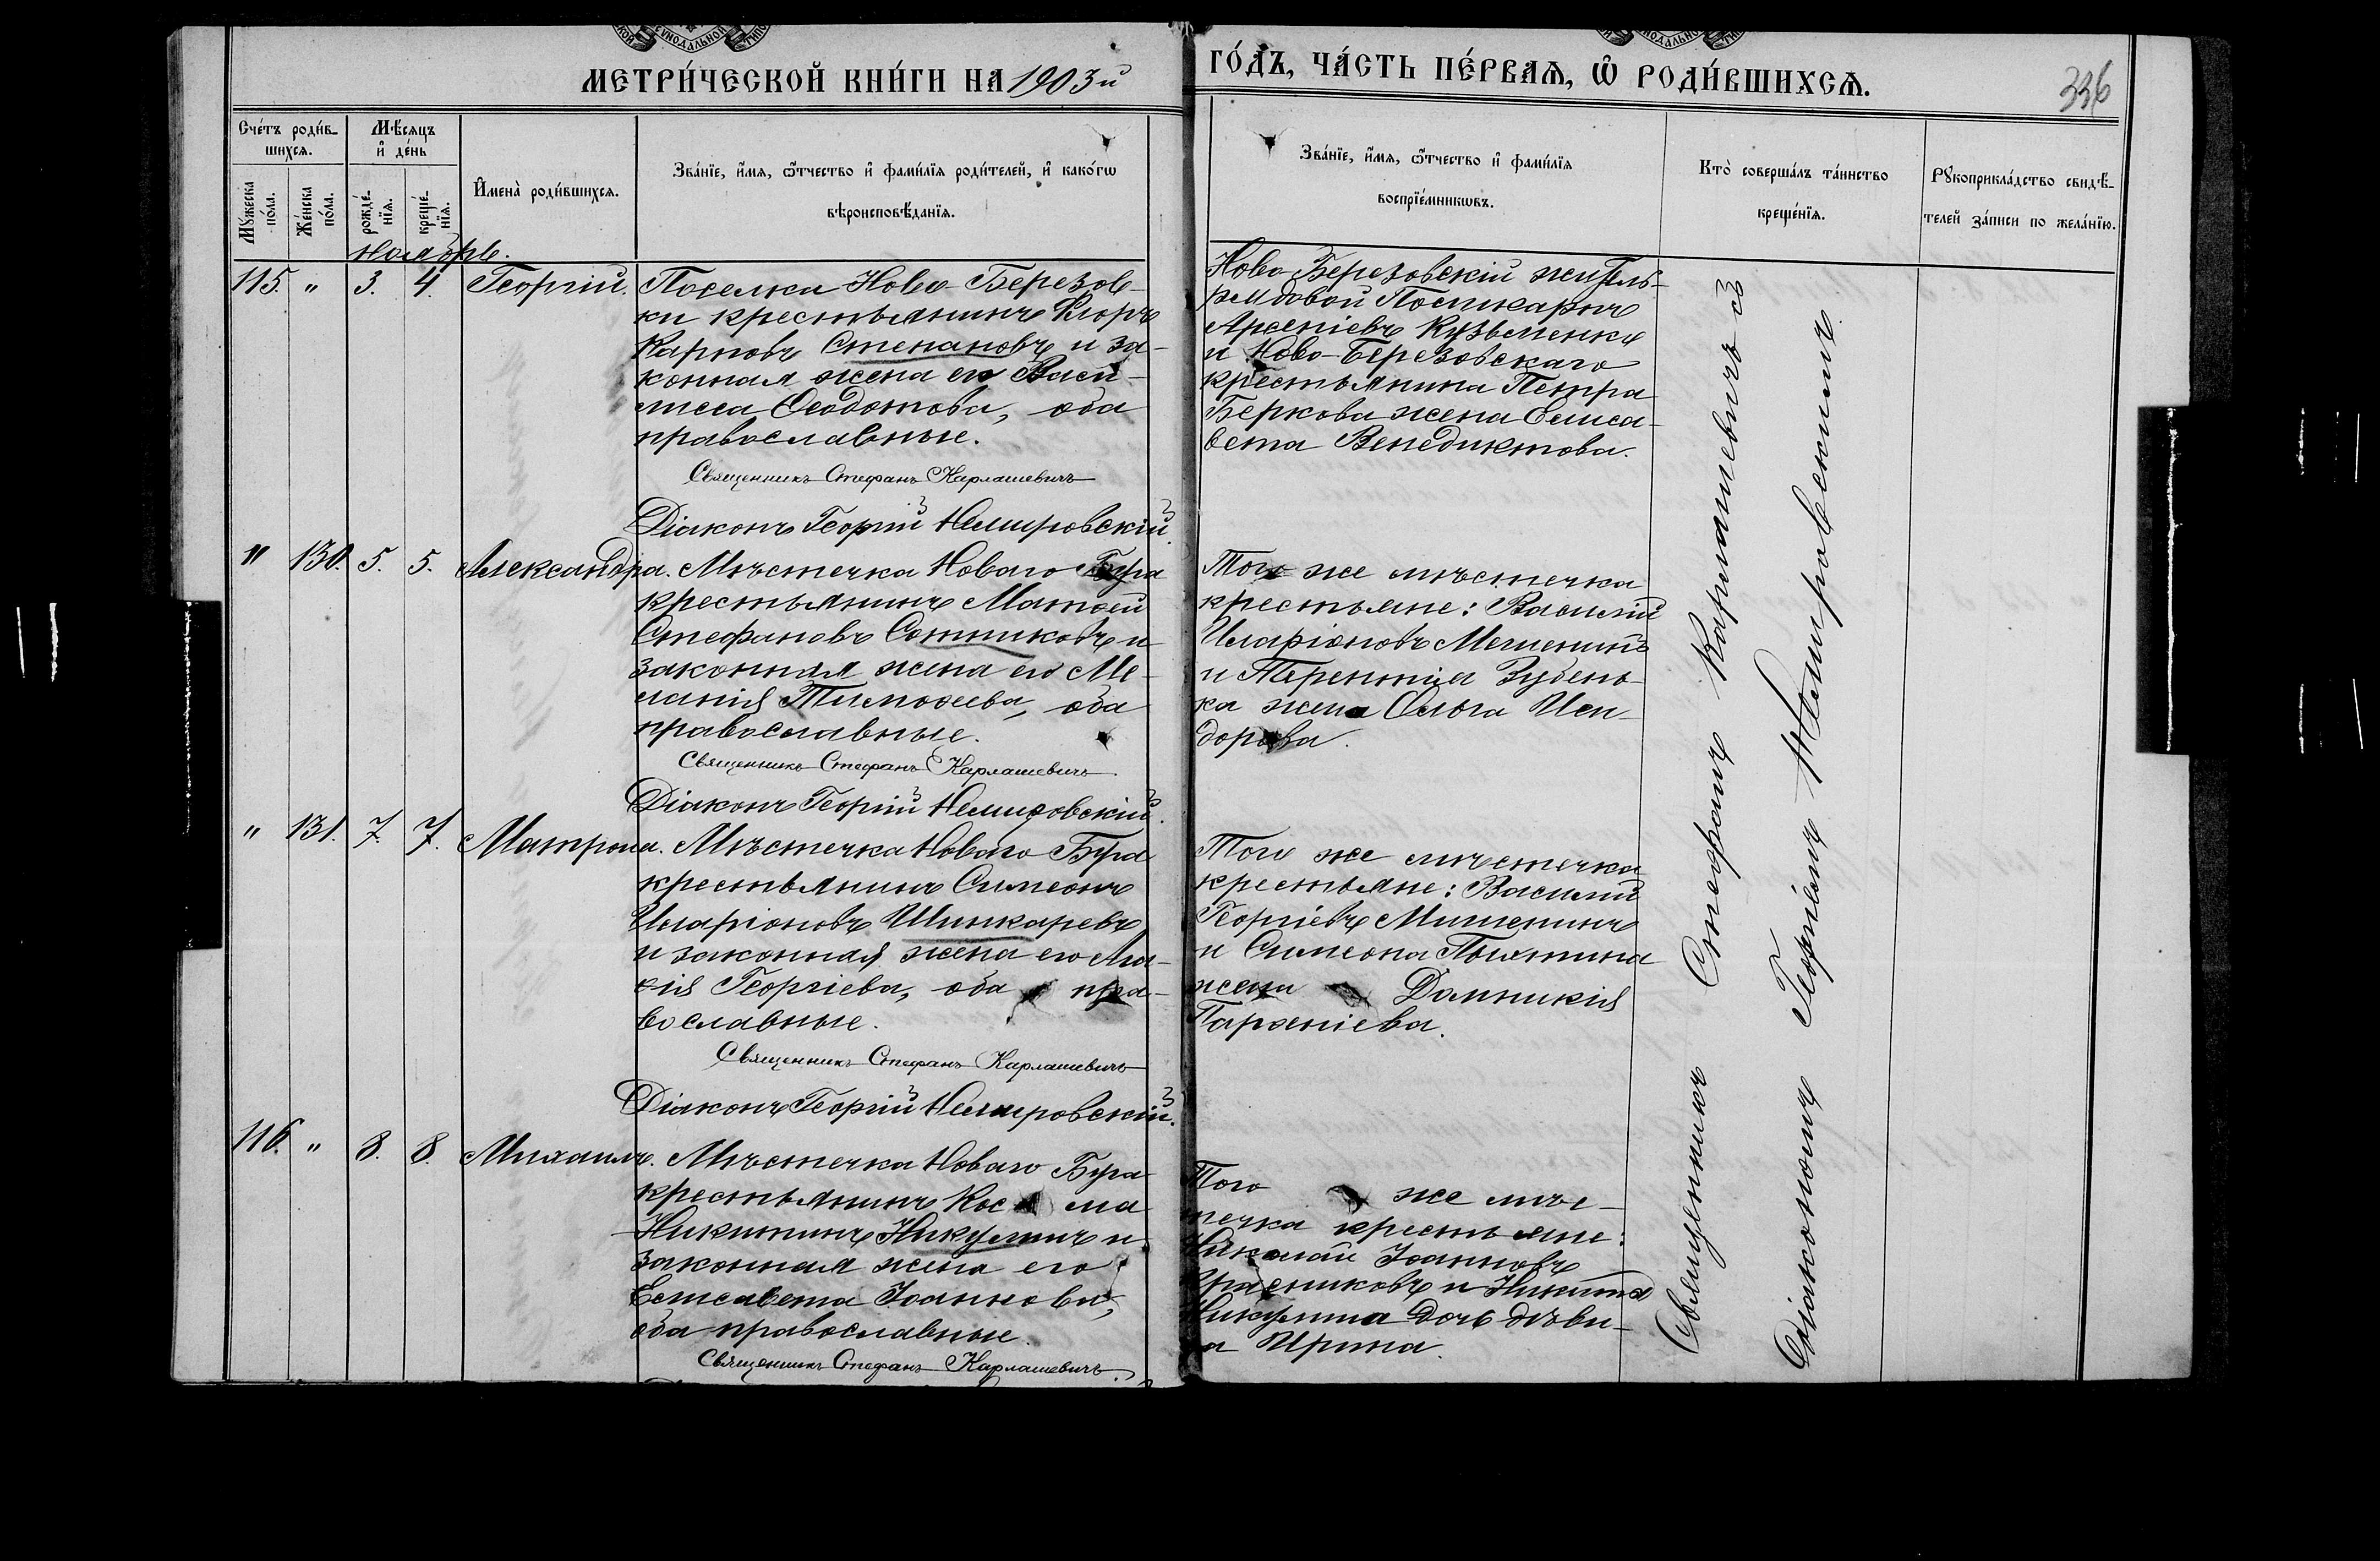 МЕТРИ́ЧЕСКОЙ КНИ́ГИ НА 1903й
ГО́ДЪ, ЧА́СТЬ ПЕ́РВАѦ, Ѽ РОДИ́ВШИХСѦ.
336
Сче́тъ роди́в-
шихсѧ.
Мѣ́сѧцъ
и҆ де́нь
Мꙋ́жеска
по́ла.
Же́нска
по́ла.
рожде́-
нїѧ.
креще́-
нїѧ.
И҆мена̀ роди́вшихсѧ.
Зва́нїе, и҆́мѧ, ѻ҆́тчество и҆ фами́лїѧ роди́телей, и҆ како́гѡ
вѣроисповѣ́данїѧ.
Зва́нїе, и҆́мѧ, ѻ҆́тчество и҆ фами́лїѧ
воспрїе́мникѡвъ.
Кто̀ соверша́лъ та́инство
креще́нїѧ.
Рꙋкоприкла́дство свидѣ́-
телей за́писи по жела́нїю.
Ноябрь.
115. " 3. 4. Георгій.
Поселка Ново-Березов-
ки крестьянинъ Егоръ
Карповъ Степановъ и за-
конная жена его Васи-
лисса Ѳеодотова, оба
православные.
Священникъ Стефанъ Карлашевичъ
Діаконъ Георгій Немировскій.
Ново-Березовскій житель
рядовой Поликарпъ
Арсеніевъ Кузьменко
и Ново-Березовскаго
крестьянина Петра
Беркова жена Елиса-
вета Венедиктова.
" 130. 5. 5. Александра.
Мѣстечка Новаго Буга
крестьянинъ Матѳей
Стефановъ Сотниковъ и
законная жена его Ме-
ланія Тимоѳеева, оба
православные.
Священникъ Стефанъ Карлашевичъ.
Діаконъ Георгій Немировскій.
Того же мѣстечка
крестьяне: Василій
Иларіоновъ Мешенинъ
и Терентія Зубень-
ка жена Ольга Иси-
дорова.
" 131. 7. 7. Матрона.
Мѣстечка Новаго Буга
крестьянинъ Симеонъ
Иларіоновъ Шинкаревъ
и законная жена его Лу-
кія Георгіева, оба пра-
вославные.
Священникъ Стефанъ Карлашевичъ
Діаконъ Георгій Немировскій.
Того же мѣстечка
крестьяне: Василій
Георгіевъ Мишенинъ
и Симеона Полятина
жена Домникія
Парѳеніева.
116. " 8. 8. Михаилъ.
Мѣстечка Новаго Буга
крестьянинъ Косма
Никитинъ Никулинъ и
законная жена его
Елисавета Іоаннова,
оба православные.
Священникъ Стефанъ Карлашевичъ.
Того же мѣс-
течка крестьяне:
Николай Іоанновъ
Красниковъ и Никиты
Никулина дочь дѣви-
ца Ирина.
Священникъ Стефанъ Карлашевичъ съ
Діакономъ Георгіемъ Немировскимъ.